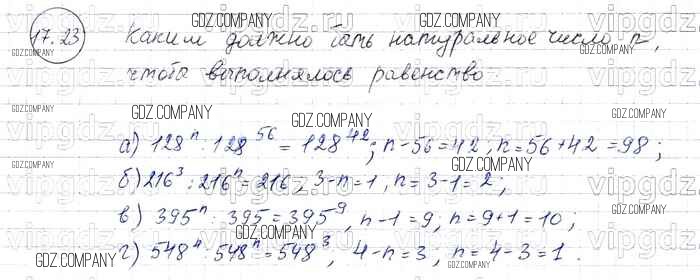 17.23 Каким должно быть натуральное число n,
чтобы выполнялось равенство
а) 128ⁿ : 128⁵⁶ = 128⁴²; n-56=42, n=56+42=98;
б) 216³ : 216ⁿ = 216, 3-n=1, n=3-1=2;
в) 395ⁿ : 395 = 395⁹, n-1=9; n=9+1=10;
г) 548⁴ : 548ⁿ = 548³, 4-n=3; n=4-3=1.
GDZ.COMPANY
vipgdz